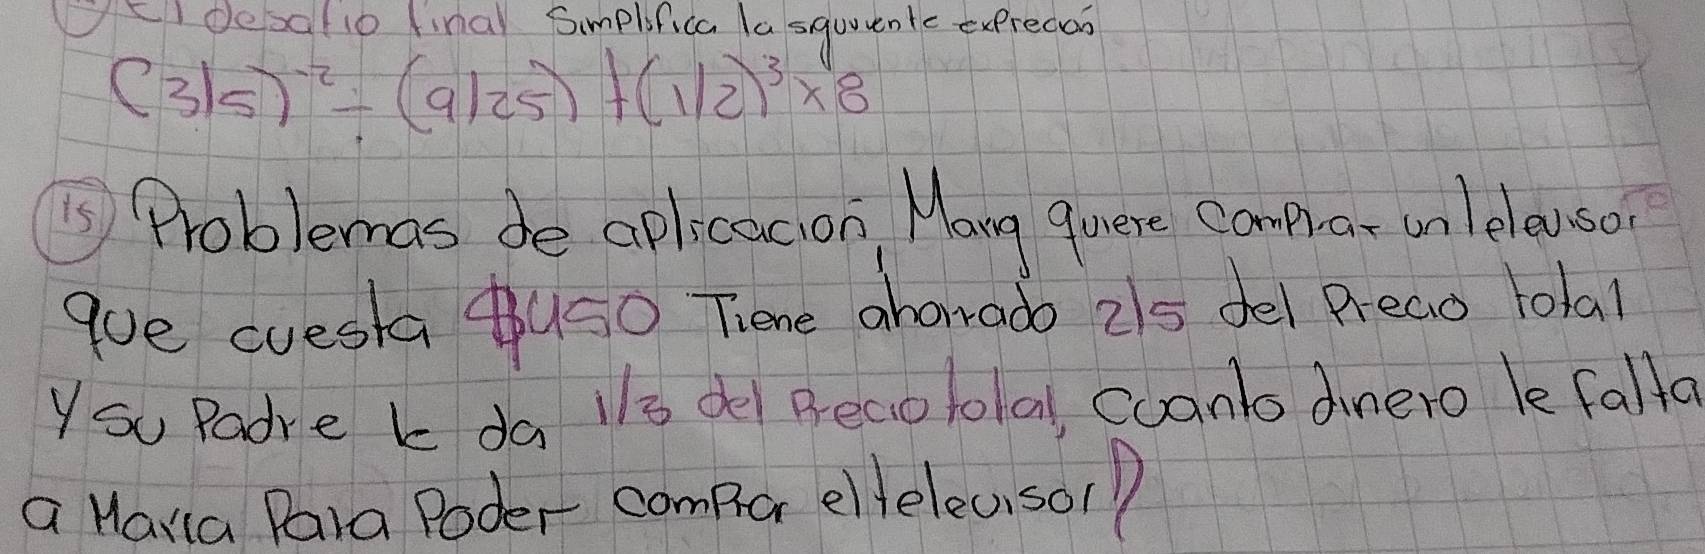 El desafio final Simplifica la siguiente expreción
(3/5)⁻² ÷ (9/25) + (1/2)³ x 8
15) Problemas de aplicacion, Maria quiere comprar un televisor
que cuesta $450 Tiene ahorrado 2/5 del Precio total
y su Padre le da 1/3 del Precio total, cuanto dinero le falta
a Maria Para Poder comprar el televisor?